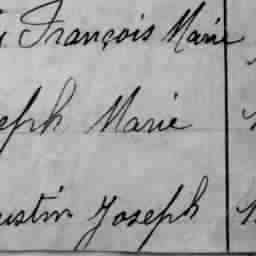 François Marie
eph Marie
ustin Joseph